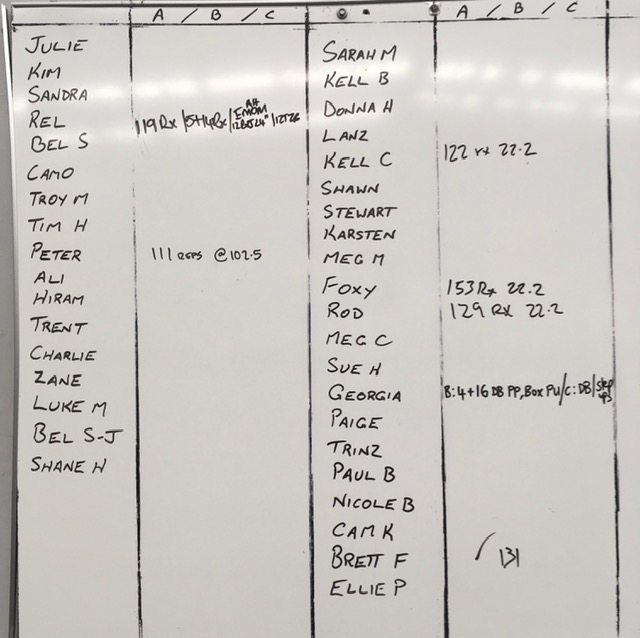 A / B / C
JULIE
KIM
SANDRA
REL 119 Rx /5+14Rx/
BEL S
CAMO
TROY M
TIM H
PETER 111 REPS @102.5
ALI
HIRAM
TRENT
CHARLIE
ZANE
LUKE M
BEL S-J
SHANE H
A / B / C
SARAH M
KELL B
DONNA H
LANZ
KELL C 122 rx 22.2
SHAWN
STEWART
KARSTEN
MEG M
FOXY 153 Rx 22.2
ROD 129 RX 22.2
MEG C
SUE H
GEORGIA B:4+16 DB PP, Box PU/C:DB/step ups
PAIGE
TRINZ
PAUL B
NICOLE B
CAM K
BRETT F / 131
ELLIE P